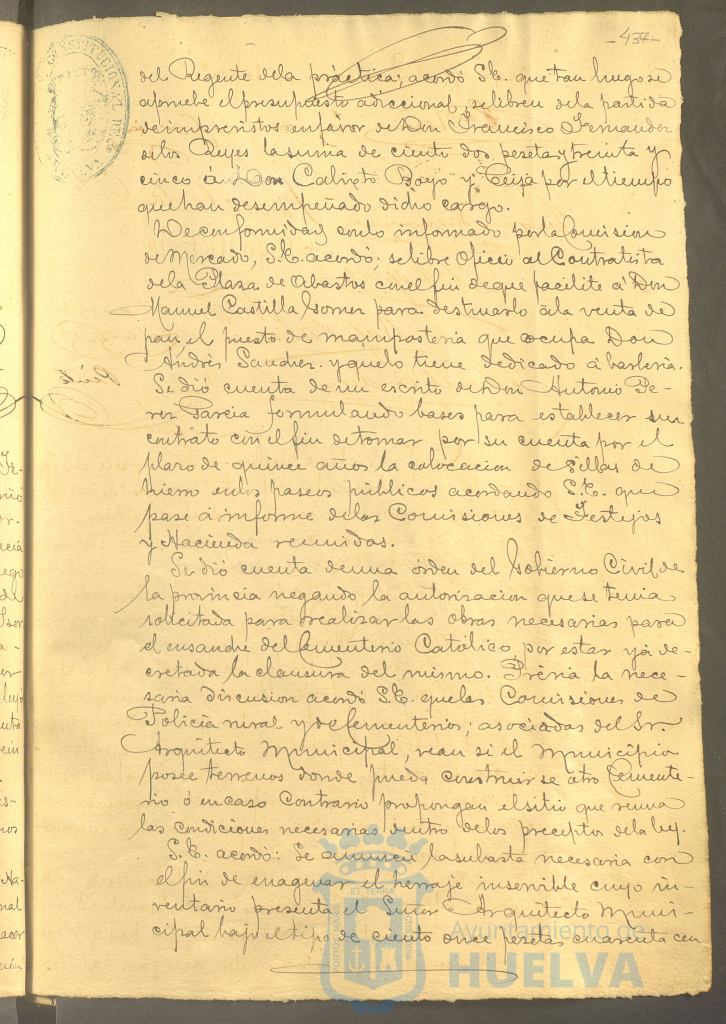 -437-
del Regente dela práctica; acordó S.E. que tan luego se
apruebe el presupuesto adiccional, se libren dela partida
de imprevistos en favor de Don Francisco Fernandez
delos Reyes la suma de ciento dos pesetas y treinta y
cinco á Don Calixto Boyo y Ceija por el tiempo
que han desempeñado dicho cargo.
De conformidad con lo informado por la Comision
de Mercado, S.E. acordó, se libre Oficio al Contratista
dela Plaza de Abastos con el fin de que facilite á Don
Manuel Castilla Gomez para destinarlo ála venta de
pan, el puesto de mamposteria que ocupa Don
Andrés Sanchez y que lo tiene dedicado á barberia.
Se dió cuenta de un escrito de Don Antonio Pe-
rez Garcia formulando bases para establecer un
contrato con el fin de tomar por su cuenta por el
plazo de quince años la colocacion de sillas de
hierro en los paseos públicos acordando S.E. que
pase á informe delas Comisiones de Festejos
y Hacienda reunidas.
Se dió cuenta de una órden del Gobierno Civil de
la provincia negando la autorizacion que se tenia
solicitada para realizar las obras necesarias para
el ensanche del Cementerio Católico, por estar yá de-
cretada la clausura del mismo. Prévia la nece-
saria discusion acordó S.E. que las Comisiones de
Policia rural y de Cementerios, asociadas del Sr.
Arquitecto Municipal, vean si el Municipio
posee terrenos donde pueda construirse otro Cemente-
rio ó en caso contrario propongan el sitio que reuna
las condiciones necesarias dentro delos preceptos dela ley.
S.E. acordó: Se anuncie la subasta necesaria con
el fin de enagenar el herraje inservible cuyo in-
ventario presenta el Señor Arquitecto Muni-
cipal bajo el tipo de ciento once pesetas cuarenta cen
Ayuntamiento de
HUELVA